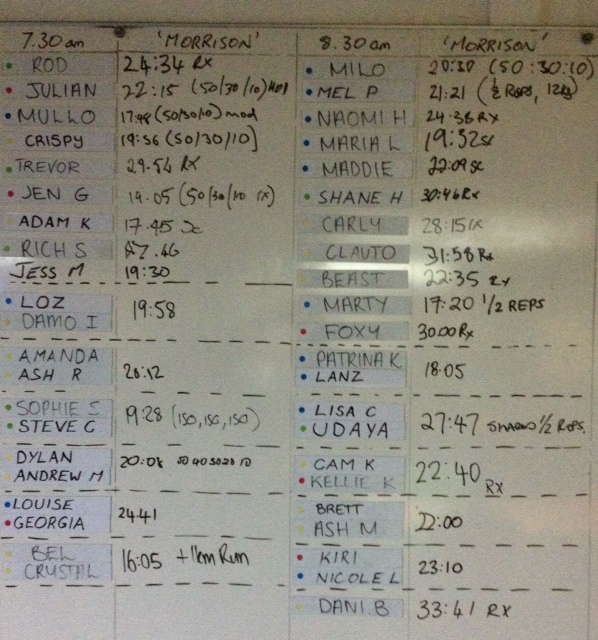 7.30am 'MORRISON'
ROD 24:34 RX
JULIAN 22:15 (50/30/10)
MULLO 17:48 (50/30/10) mod
CRISPY 19:56 (50/30/10)
TREVOR 29.54 RX
JEN G 19.05 (50/30/10 RX)
ADAM K 17.45 Sc
RICH S 27.46
JESS M 19:30
LOZ
DAMO I 19:58
AMANDA
ASH R 26:12
SOPHIE S
STEVE G 19:28 (150, 150, 150)
DYLAN
ANDREW M 20:08 50 40 30 20 10
LOUISE
GEORGIA 24.41
BEL
CRUSTAL 16:05 +1km Run
8.30am 'MORRISON'
MILO 20:30 (50:30:10)
MEL P 21:21 (½ REPS, 12kg)
NAOMI H 24:36 RX
MARIA L 19:32 sc
MADDIE 22:09 sc
SHANE H 30:46 Rx
CARLY 28:15
CLAUTO 31:58 Rx
BEAST 22:35
MARTY 17:20 1/2 REPS
FOXY 30.00 Rx
PATRINA K
LANZ 18:05
LISA C
UDAYA 27:47 SHARED ½ REPS.
CAM K
KELLIE K 22:40 RX
BRETT
ASH M 22:00
KIRI
NICOLE L 23:10
DANI.B 33:41 RX